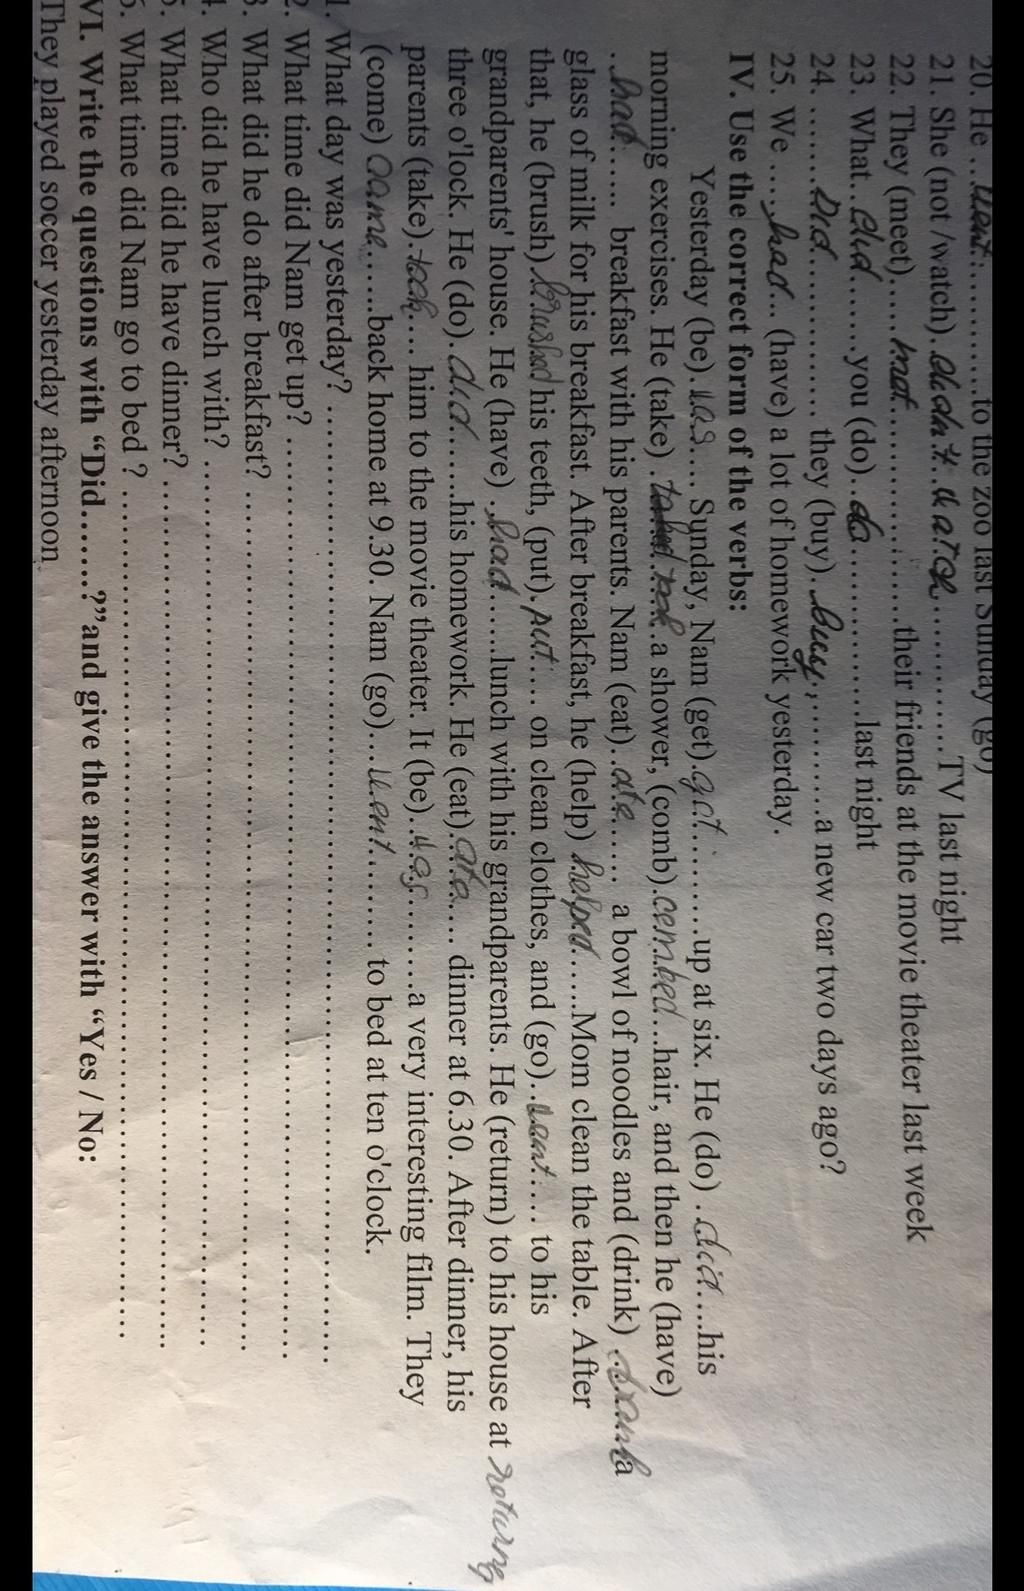 20. He ..went............to the zoo last Sunday (go)
21. She (not /watch). didn't..watch............TV last night
22. They (meet)....met......................their friends at the movie theater last week
23. What..did.......you (do)..do....................last night
24. .......Did............... they (buy)..buy...........a new car two days ago?
25. We ....had... (have) a lot of homework yesterday.
IV. Use the correct form of the verbs:
Yesterday (be).was.... Sunday, Nam (get).got.........up at six. He (do) ..did....his
morning exercises. He (take) .took..a shower, (comb).combed...hair, and then he (have)
..had..... breakfast with his parents. Nam (eat)..ate..... a bowl of noodles and (drink) .. a
glass of milk for his breakfast. After breakfast, he (help) helped.....Mom clean the table. After
that, he (brush).brushed his teeth, (put).put.... on clean clothes, and (go)..went.... to his
grandparents' house. He (have) .had......lunch with his grandparents. He (return) to his house at
three o'lock. He (do).did......his homework. He (eat).ate.... dinner at 6.30. After dinner, his
parents (take).took... him to the movie theater. It (be)..was.......a very interesting film. They
(come) came.....back home at 9.30. Nam (go)...went....... to bed at ten o'clock.
1. What day was yesterday? ..........................................................................
2. What time did Nam get up? ..........................................................................
3. What did he do after breakfast? ..........................................................................
4. Who did he have lunch with? ..........................................................................
5. What time did he have dinner?..........................................................................
6. What time did Nam go to bed ? ..........................................................................
VI. Write the questions with “Did......?”and give the answer with “Yes / No:
They played soccer yesterday afternoon